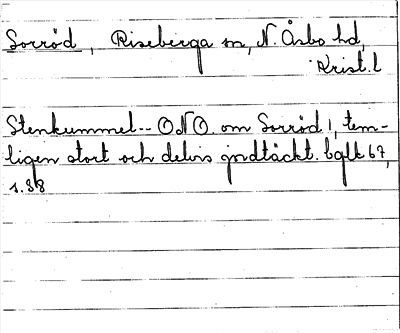 Sorröd, Riseberga sn, N. Åsbo hd,
Krist. l
Stenkummel -- ONO. om Sorröd 1, tem-
ligen stort och delvis jordtäckt.
67,
s. 38